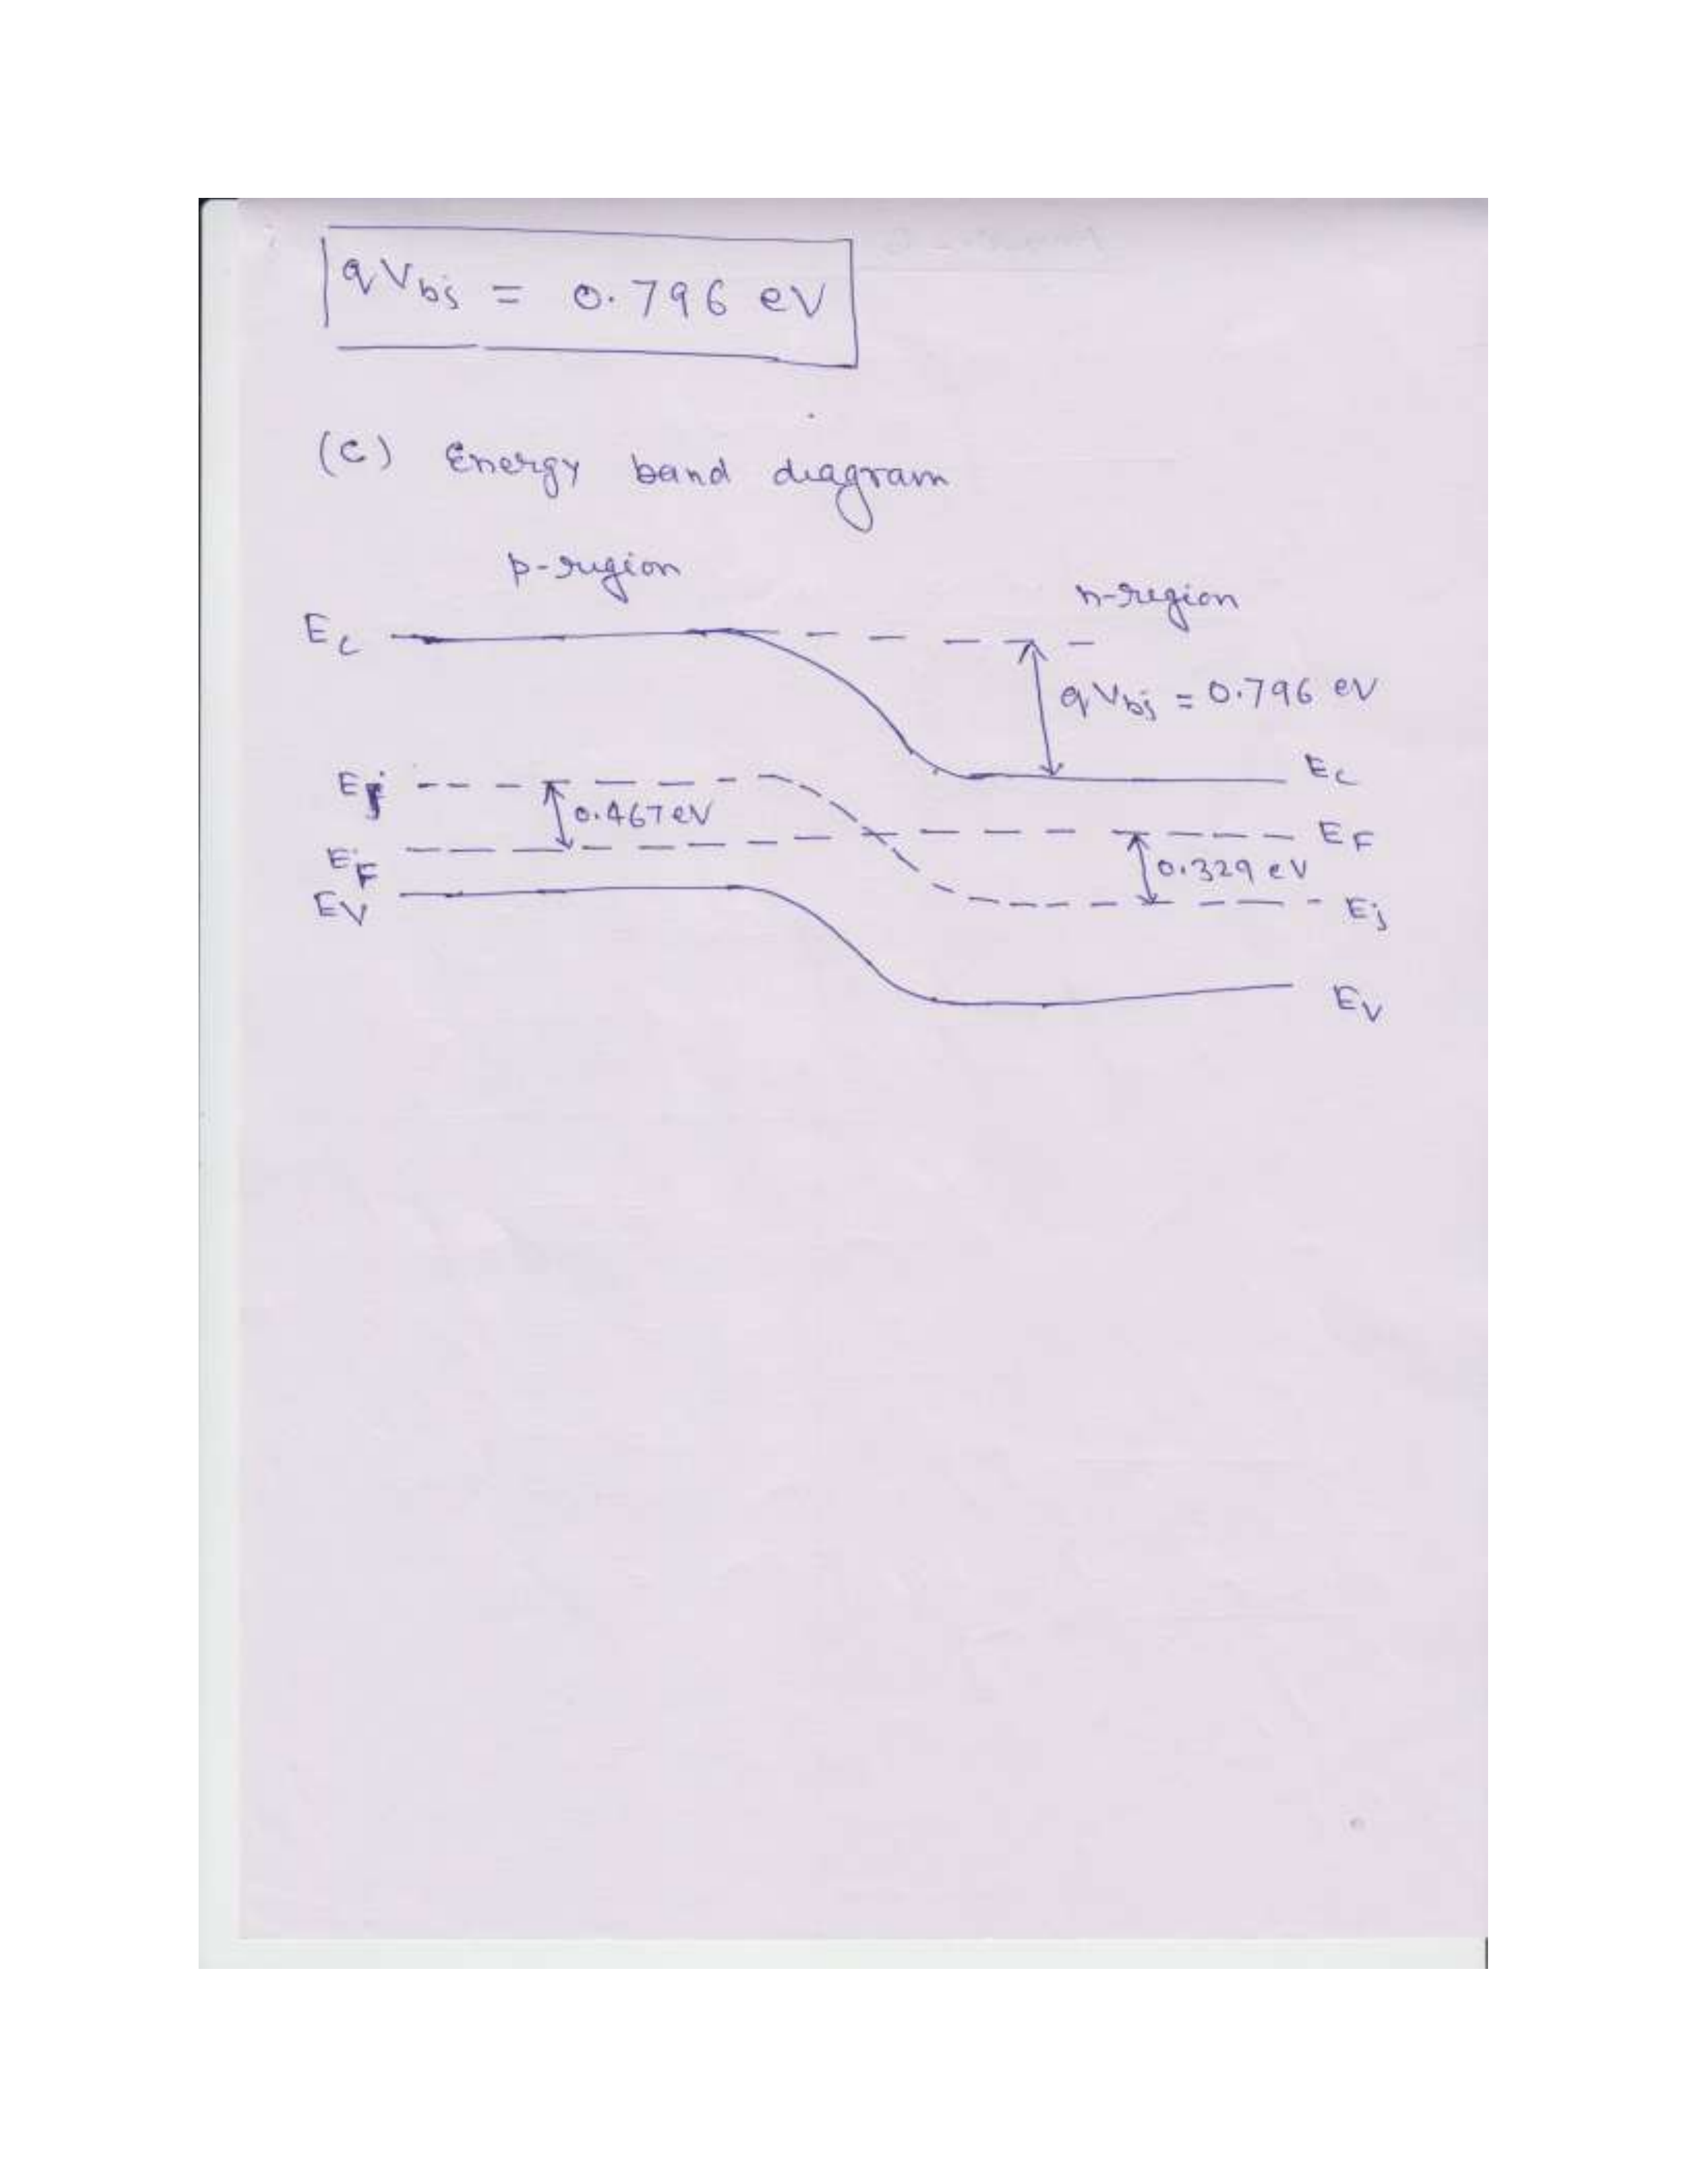 qVbi = 0.796 eV
(C) Energy band diagram
p-region
n-region
Ec
qVbi = 0.796 eV
Ec
Ei
0.467 eV
EF
EF
0.329 eV
Ev
Ei
Ev